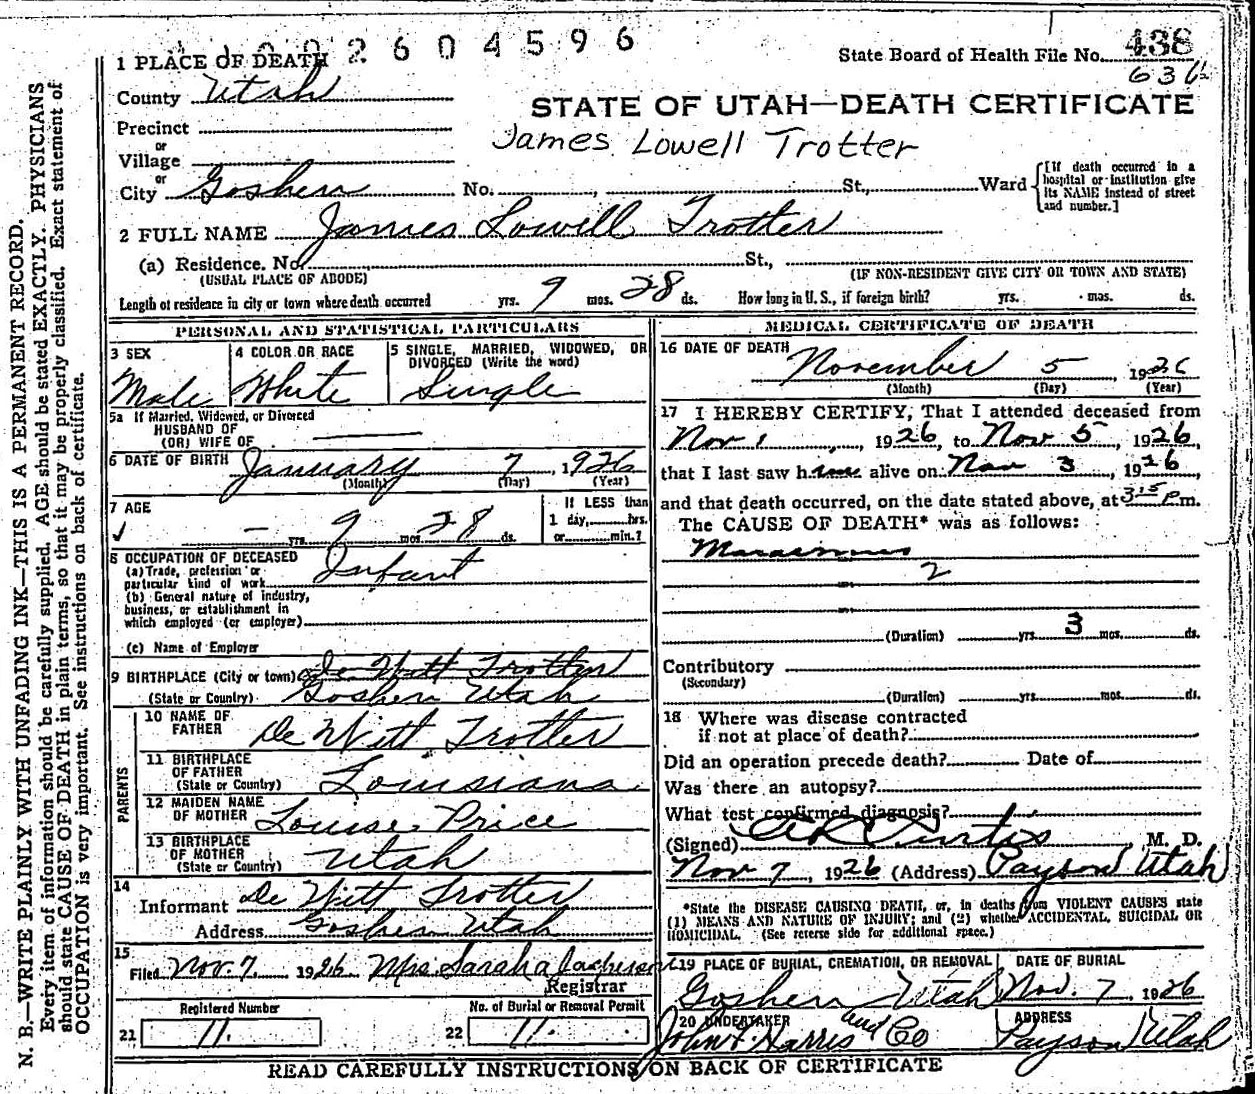 1002604596
State Board of Health File No. 438
636
1 PLACE OF DEATH
County Utah
STATE OF UTAH—DEATH CERTIFICATE
Precinct
or
James Lowell Trotter
Village
or
City Goshen No. , St., Ward [If death occurred in a hospital or institution give its NAME instead of street and number.]
2 FULL NAME James Lowell Trotter
(a) Residence. No. St.,
(USUAL PLACE OF ABODE) (IF NON-RESIDENT GIVE CITY OR TOWN AND STATE)
Length of residence in city or town where death occurred yrs. 9 mos. 28 ds. How long in U. S., if foreign birth? yrs. mos. ds.
PERSONAL AND STATISTICAL PARTICULARS
3 SEX Male
4 COLOR OR RACE White
5 SINGLE, MARRIED, WIDOWED, OR
DIVORCED (Write the word)
Single
5a If Married, Widowed, or Divorced
HUSBAND OF
(OR) WIFE OF
6 DATE OF BIRTH January 7, 1926
(Month) (Day) (Year)
7 AGE
– yrs. 9 mos. 28 ds.
If LESS than
1 day, hrs.
or min.?
8 OCCUPATION OF DECEASED
(a) Trade, profession or
particular kind of work Infant
(b) General nature of industry,
business, or establishment in
which employed (or employer)
(c) Name of Employer
9 BIRTHPLACE (City or town) De Witt Trotter
(State or Country) Goshen Utah
PARENTS
10 NAME OF
FATHER De Witt Trotter
11 BIRTHPLACE
OF FATHER
(State or Country) Louisiana
12 MAIDEN NAME
OF MOTHER Louise Price
13 BIRTHPLACE
OF MOTHER
(State or Country) Utah
14
Informant De Witt Trotter
Address Goshen Utah
15
Filed Nov. 7. 1926 Mrs. Sarah a Jasperson
Registrar
Registered Number
21 11.
No. of Burial or Removal Permit
22 11.
MEDICAL CERTIFICATE OF DEATH
16 DATE OF DEATH
November 5 1926
(Month) (Day) (Year)
17 I HEREBY CERTIFY, That I attended deceased from
Nov 1, 1926, to Nov 5, 1926,
that I last saw him alive on Nov 3, 1926
and that death occurred, on the date stated above, at 3 15 P m.
The CAUSE OF DEATH* was as follows:
Marasmus
2
(Duration) yrs. 3 mos. ds.
Contributory
(Secondary)
(Duration) yrs. mos. ds.
18 Where was disease contracted
if not at place of death?
Did an operation precede death? Date of
Was there an autopsy?
What test confirmed diagnosis?
(Signed) Curtis M. D.
Nov 7, 1926 (Address) Payson Utah
*State the DISEASE CAUSING DEATH, or, in deaths from VIOLENT CAUSES state
(1) MEANS AND NATURE OF INJURY; and (2) whether ACCIDENTAL, SUICIDAL OR
HOMICIDAL. (See reverse side for additional space.)
19 PLACE OF BURIAL, CREMATION, OR REMOVAL
Goshen Utah
DATE OF BURIAL
Nov. 7, 1926
20 UNDERTAKER
John F. Harris and Co
ADDRESS
Payson Utah
READ CAREFULLY INSTRUCTIONS ON BACK OF CERTIFICATE
N. B.—WRITE PLAINLY WITH UNFADING INK—THIS IS A PERMANENT RECORD.
Every item of information should be carefully supplied. AGE should be stated EXACTLY. PHYSICIANS
should state CAUSE OF DEATH in plain terms, so that it may be properly classified. Exact statement of
OCCUPATION is very important. See instructions on back of certificate.